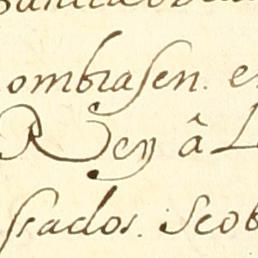 ombrasen. e
Rey â L
scados. Scob